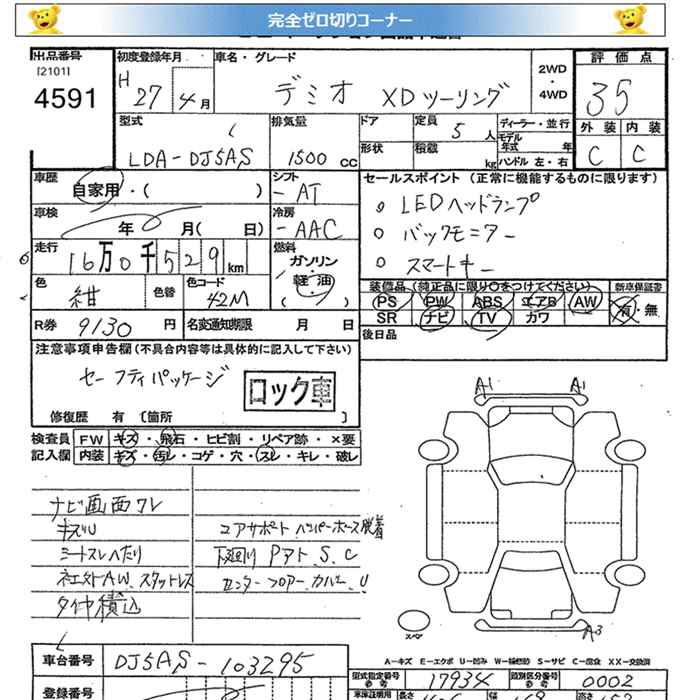 完全ゼロ切りコーナー
出品番号
[2101]
4591
初度登録年月
H 27年4月
車名・グレード
デミオ XDツーリング
2WD
・
4WD
評価点
35
外装 内装
C C
型式
LDA-DJ5AS
排気量
1500 cc
ドア
形状
定員 5人
積載 kg
ディーラー・並行
モデル年式 年
ハンドル 左・右
車歴
自家用・( )
シフト
AT
車検
年 月( 日)
冷房
AAC
走行
16万0千529km
燃料
ガソリン
・
軽油
( )
色
紺
色替
色コード
42M
R券 9130円
名変通知期限 月 日
セールスポイント (正常に機能するものに限ります)
。LEDヘッドランプ
。バックモニター
。スマートキー
装備品(純正品に限り○をつけてください)
新車保証書
PS PW ABS エアB AW
SR ナビ TV カワ
有・無
後日品
注意事項申告欄(不具合内容等は具体的に記入して下さい)
セーフティパッケージ
ロック車
修復歴 有 〔箇所 〕
検査員 記入欄
FW キズ・飛石・ヒビ割・リペア跡・×要
内装 キズ・汚レ・コゲ・穴・スレ・キレ・破レ
ナビ画面ワレ
キズU
シートスレヘたり
ネクストAW、スタットレス
タイヤ積込
コアサポート
下廻り Pアト、S、C
センターフロアーカバー U
A1 A1
A3
スペア
A-キズ E-エクボ U-凹み W-補修跡 S-サビ C-腐食 XX-交換済
車台番号 DJ5AS-103295
登録番号
型式指定番号 参考 17934
類別区分番号 参考 0002
車庫証明用 長さ 幅 高さ